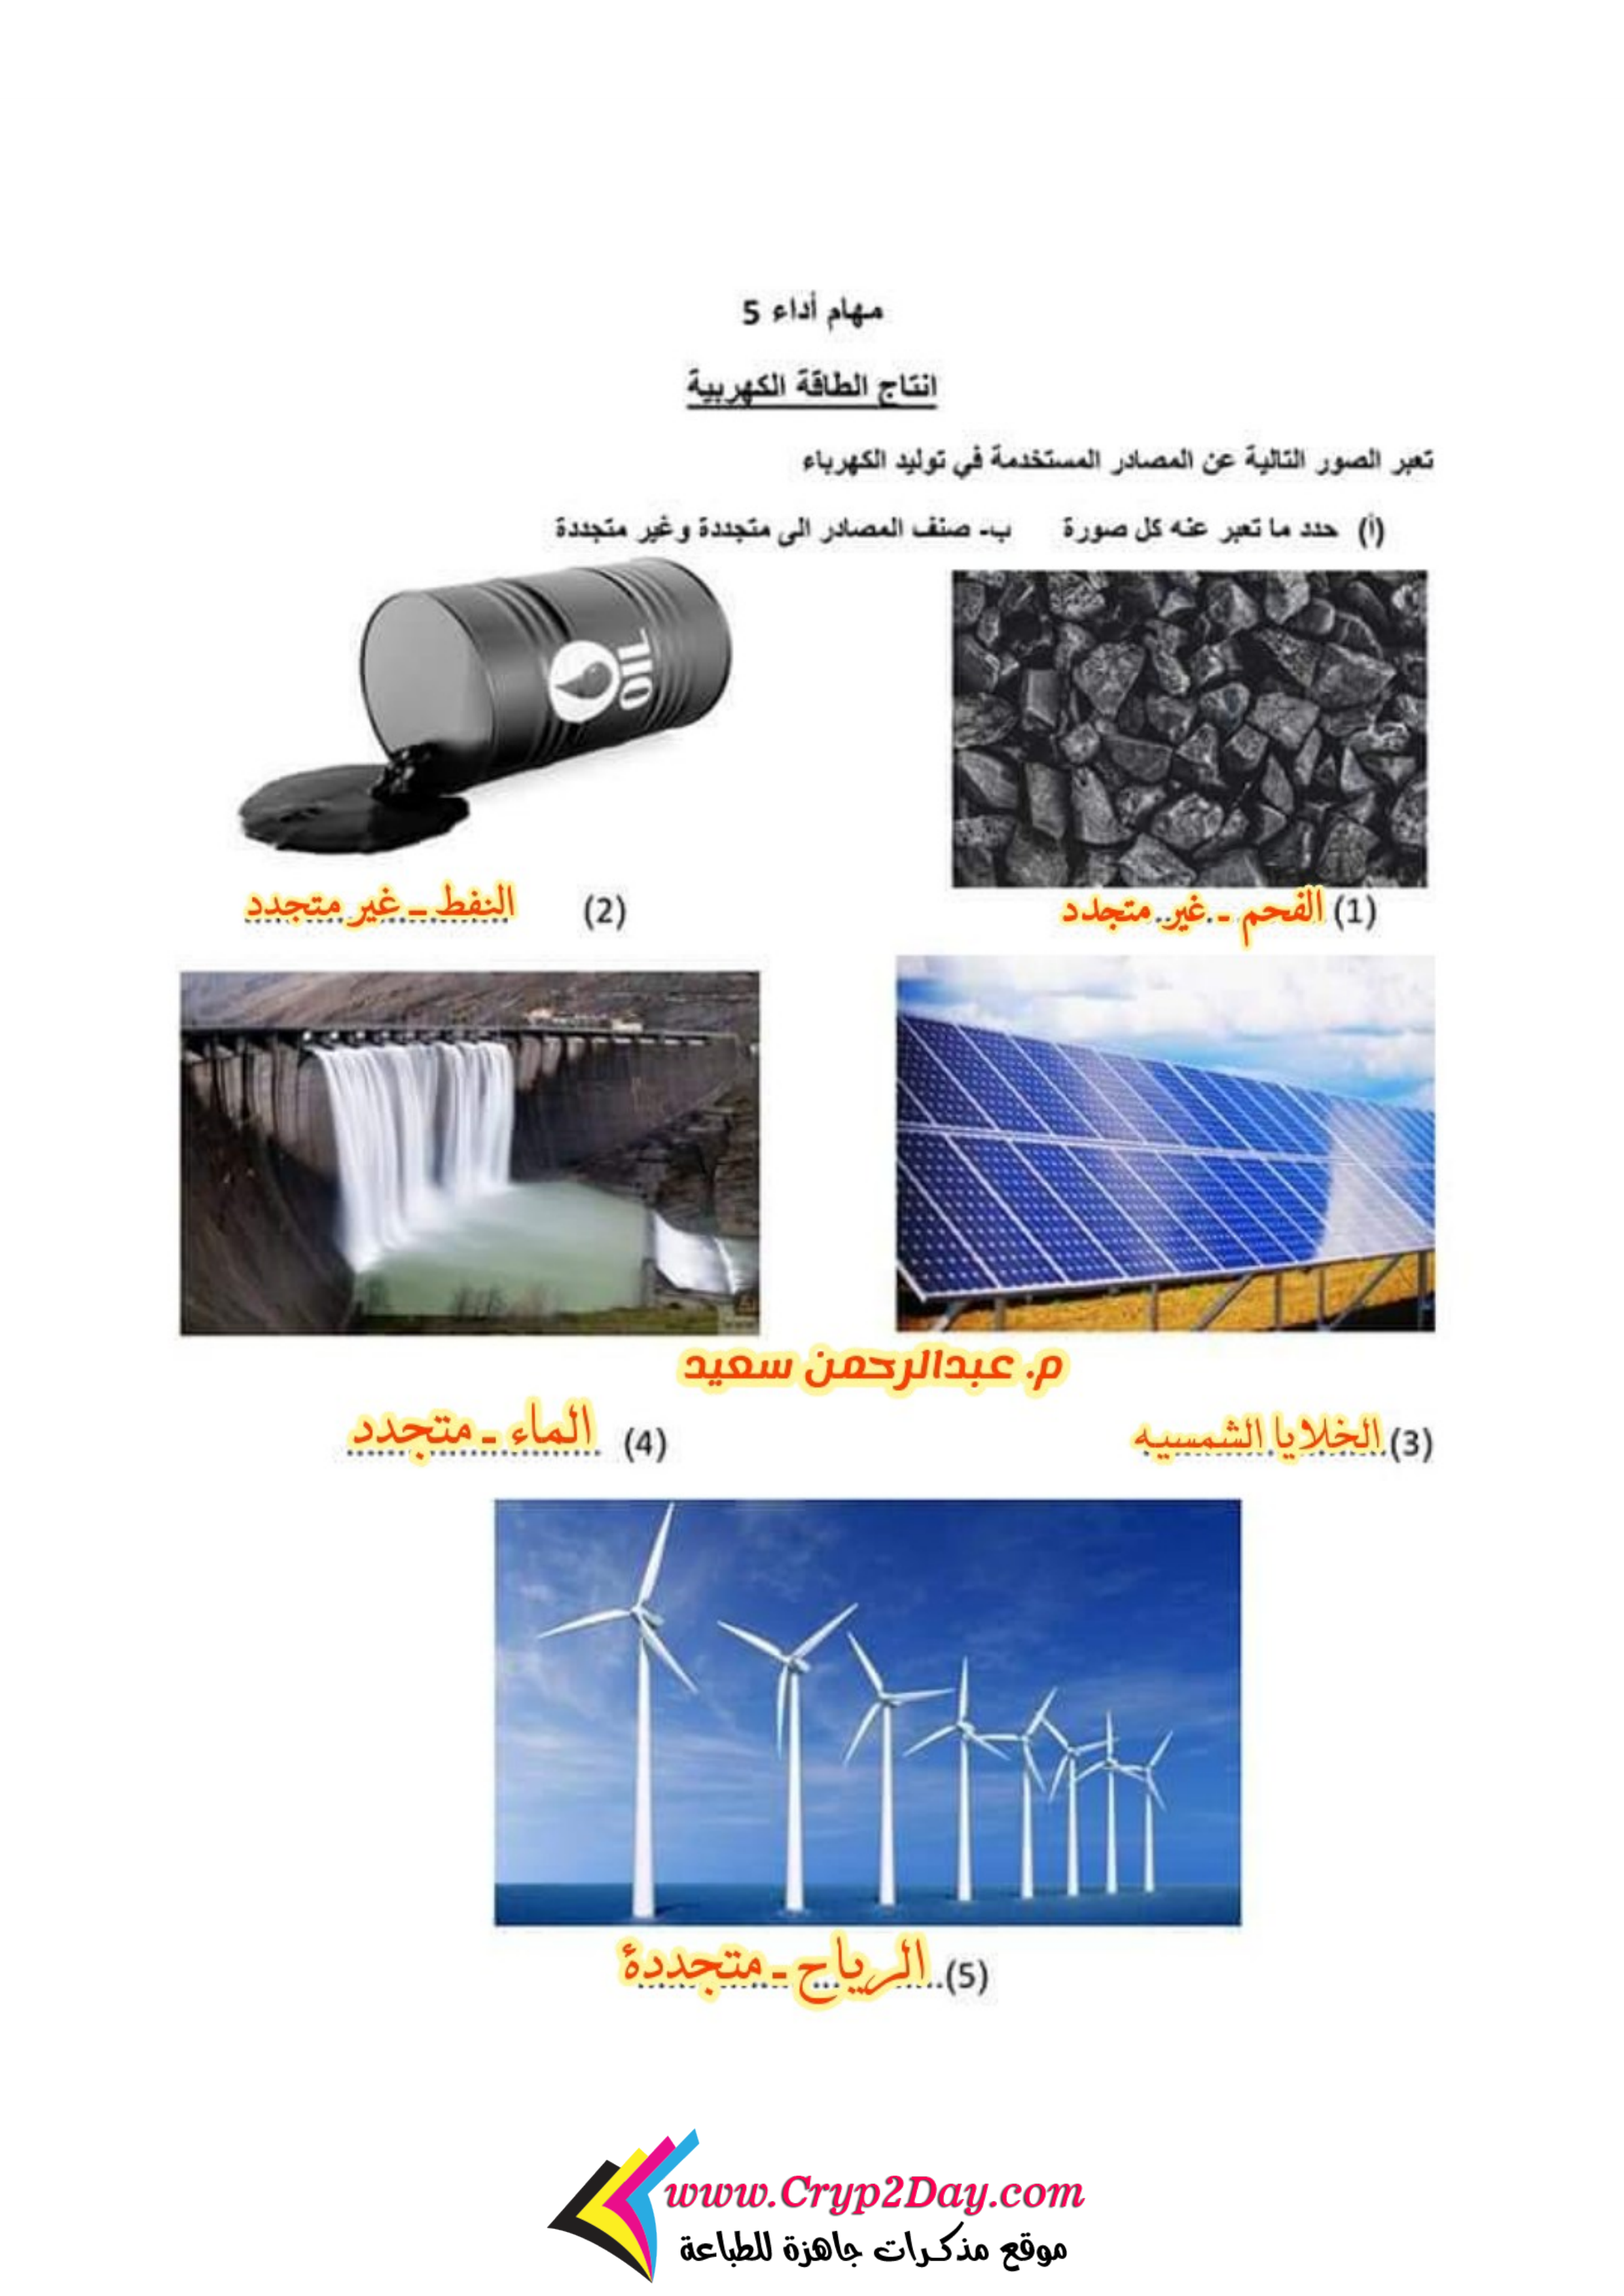 مهام أداء 5
انتاج الطاقة الكهربية
تعبر الصور التالية عن المصادر المستخدمة في توليد الكهرباء
(أ) حدد ما تعبر عنه كل صورة ب- صنف المصادر الى متجددة وغير متجددة
OIL
(1) الفحم - غير متجدد
(2) النفط - غير متجدد
م. عبدالرحمن سعيد
(3) الخلايا الشمسيه
(4) الماء - متجدد
(5) الرياح - متجددة
www.Cryp2Day.com
موقع مذكرات جاهزة للطباعة